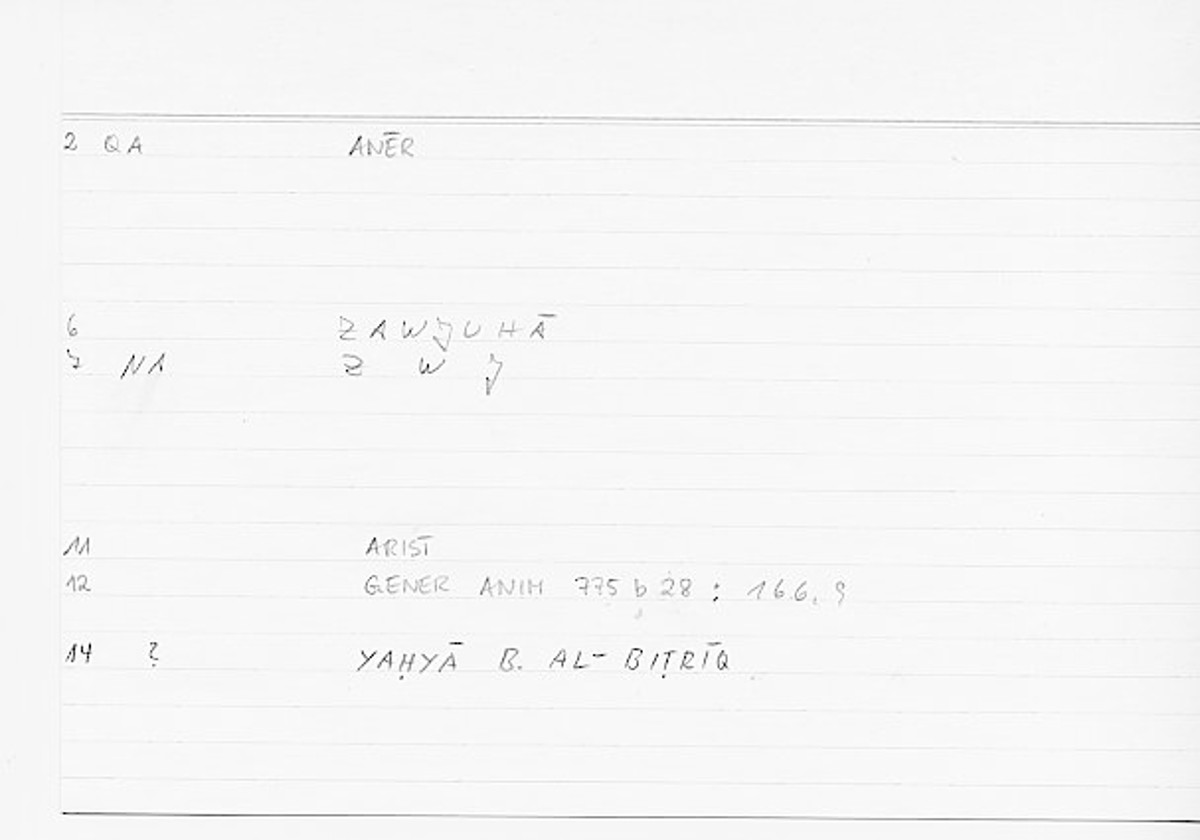 2 QA ANĒR
6 ZAWJUHĀ
7 NA Z W J
11 ARIST
12 GENER ANIM 775 b 28 : 166, 9
14 ? YAḤYĀ B. AL- BIṬRĪQ